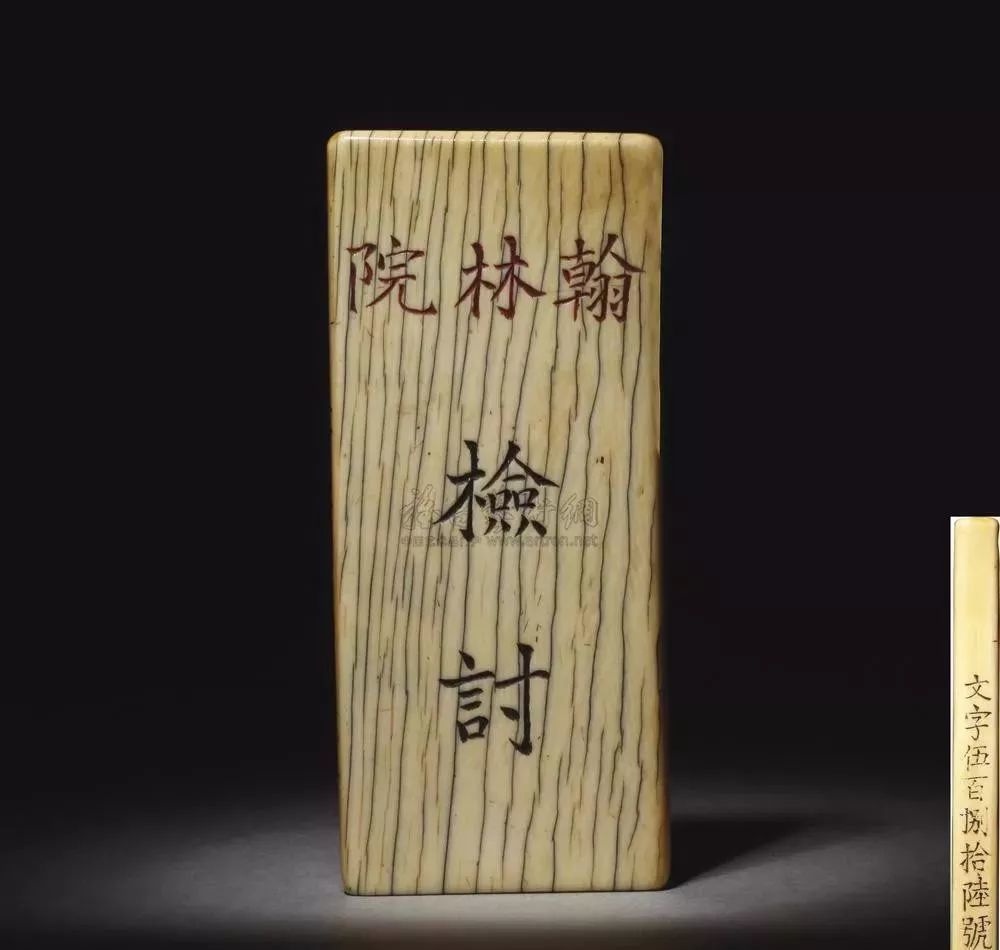 翰林院
檢
討
www.artron.net
文字伍百捌拾陸號